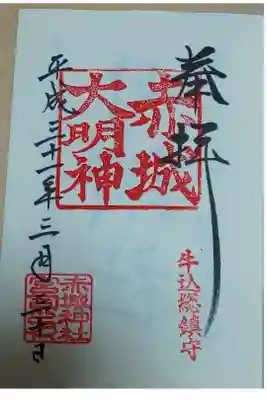 奉拝
牛込総鎮守
赤城
大明神
平成三十一年三月三十日
赤城神社
宮司之印